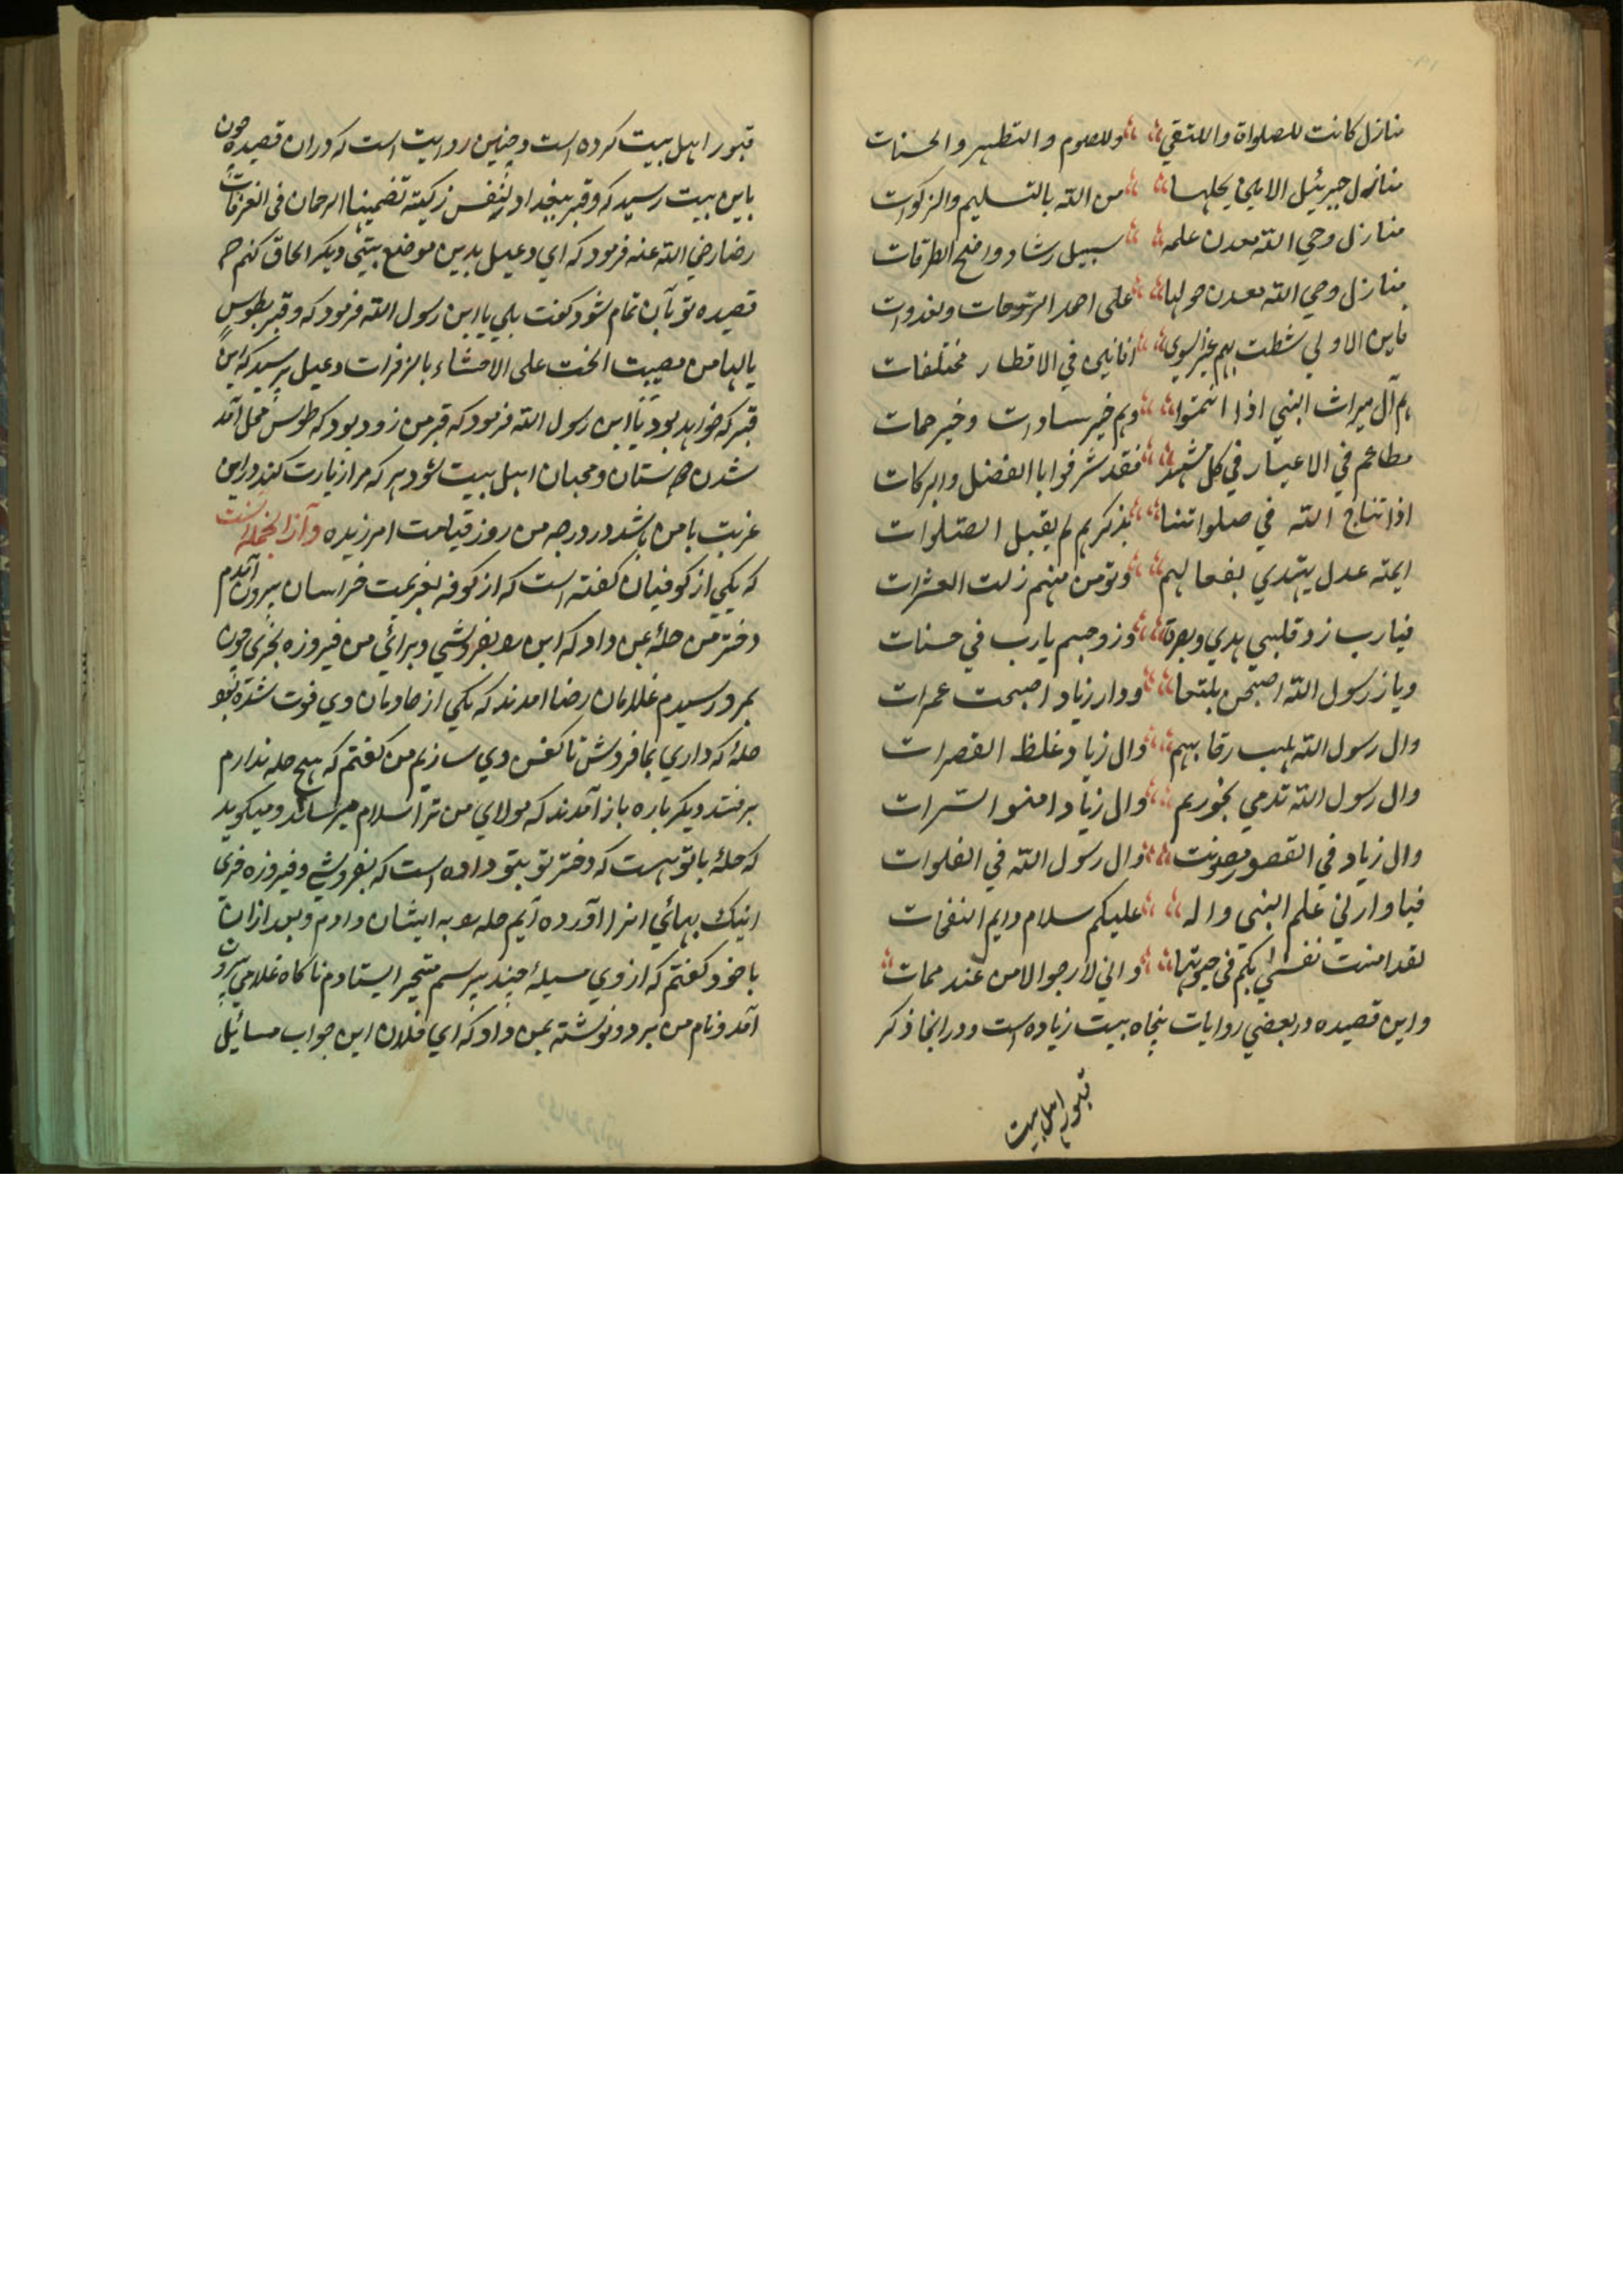 منازل کانت للصلواة و اللتقي وللصوم و التطهير و الحسنات
منازل جبرئيل الامين يحلها من الله بالتسليم والزکوات
منازل وحي الله معدن علمه سبيل رشاد واضح الطرقات
منازل وحي الله معدن حولها علی احمد الروحات ولغدوات
فاين الاولي شطت بهم غير النوي افانين في الاقطار مختلفات
هم آل ميراث النبي اذا انتموا وهم خير سادات و خير حمات
مطاعم في الاعسار في کل مشهد فقد شرفوا باالفضل والبرکات
اذا تناج الله في صلواتنا بذکرهم لم يقبل الصلوات
ايمته عدل يهتدي بفعالهم وتومن منهم زلت العثرات
فيارب زد قلبي هدي وبصرة وزوجهم يارب في حسنات
ويار رسول الله اصبحن بلقعا ودار زياد اصبحت عمرات
وال رسول الله رقابهم وال زياد غلظ القصرات
وال رسول الله تدمي نحورهم وال زياد امنوا السرات
وال زياد في القصور مصونت وال رسول الله في الفلوات
فيا وارثي علم النبي واله عليکم سلام دايم النفحات
لقد امنت نفسي بکم في حيوتها واني لارجوا الامن عند ممات
و اين قصيده در بعضي روايات پنجاه بيت زياده است و در اينجا ذکر
قبور اهل بيت
قبور اهل بيت کرده است و چنين روايت است که دران قصيده چون
باين بيت رسيد که وقبر ببغداد لنفس زکيته تضمينها الرحمان في الغرفات
رضا رضي الله عنه فرمود که اي دعبل بدين موضع بيتي ديکر الحاق کنم که
قصيده تو بآن تمام شود کفت بلي يا ابن رسول الله فرمود که وقبر بطوس
يالها من مصيبت الحت علی الاحشاء بالزفرات دعبل پرسيد که اين
قبر که خواهد بود يا ابن رسول الله فرمود که قبر من زود بود که طوس محل آمد
شدن دوستان و محبان اهل بيت شود هر که مرا زيارت کند در اين
غربت با من باشد در درجه من روز قيامت امرزيده و آزانجمله است
که يکي از کوفيان کفته است که از کوفه بعزيمت خراسان بيرون آمدم
دختر من حلهٔ بمن داد که اين را بفروشي و براي من فيروزه بخري چون
بمرو رسيدم غلامان رضا امدند که يکي از خادمان وي فوت شده بود
حلهٔ که داري بما فروش تا کفن وي سازيم من کفتم که هيچ حله ندارم
برفتند ديکر باره باز آمدند که مولاي من ترا سلام ميرساند و ميکويد
که حلهٔ با تو هست که دختر تو بتو داده است که بفروشي و فيروزه خري
اينک بهائي انرا آورده آيم حله را به ايشان دادم و بعد ازان
با خود کفتم که از وي مسيلهٔ چند بپرسم متحير ايستادم ناکاه غلامي بيرون
آمد و نام من برد و نوشته بمن داد که اي فلان اين جواب مسائيل